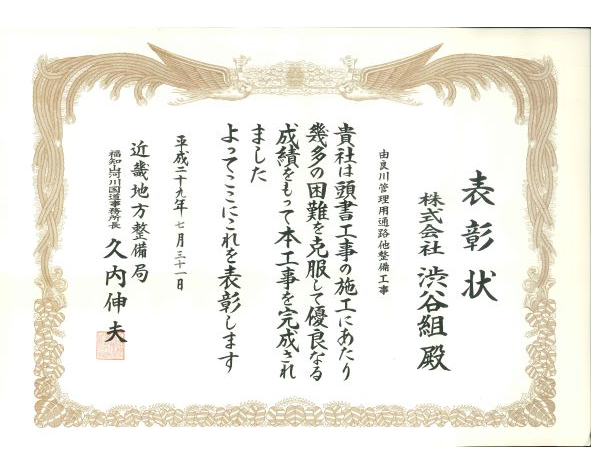 表彰状
株式会社 渋谷組 殿
由良川管理用通路他整備工事
貴社は頭書工事の施工にあたり
幾多の困難を克服して優良なる
成績をもって本工事を完成され
ました
よってここにこれを表彰します
平成二十九年七月三十一日
近畿地方整備局
福知山河川国道事務所長 久内伸夫